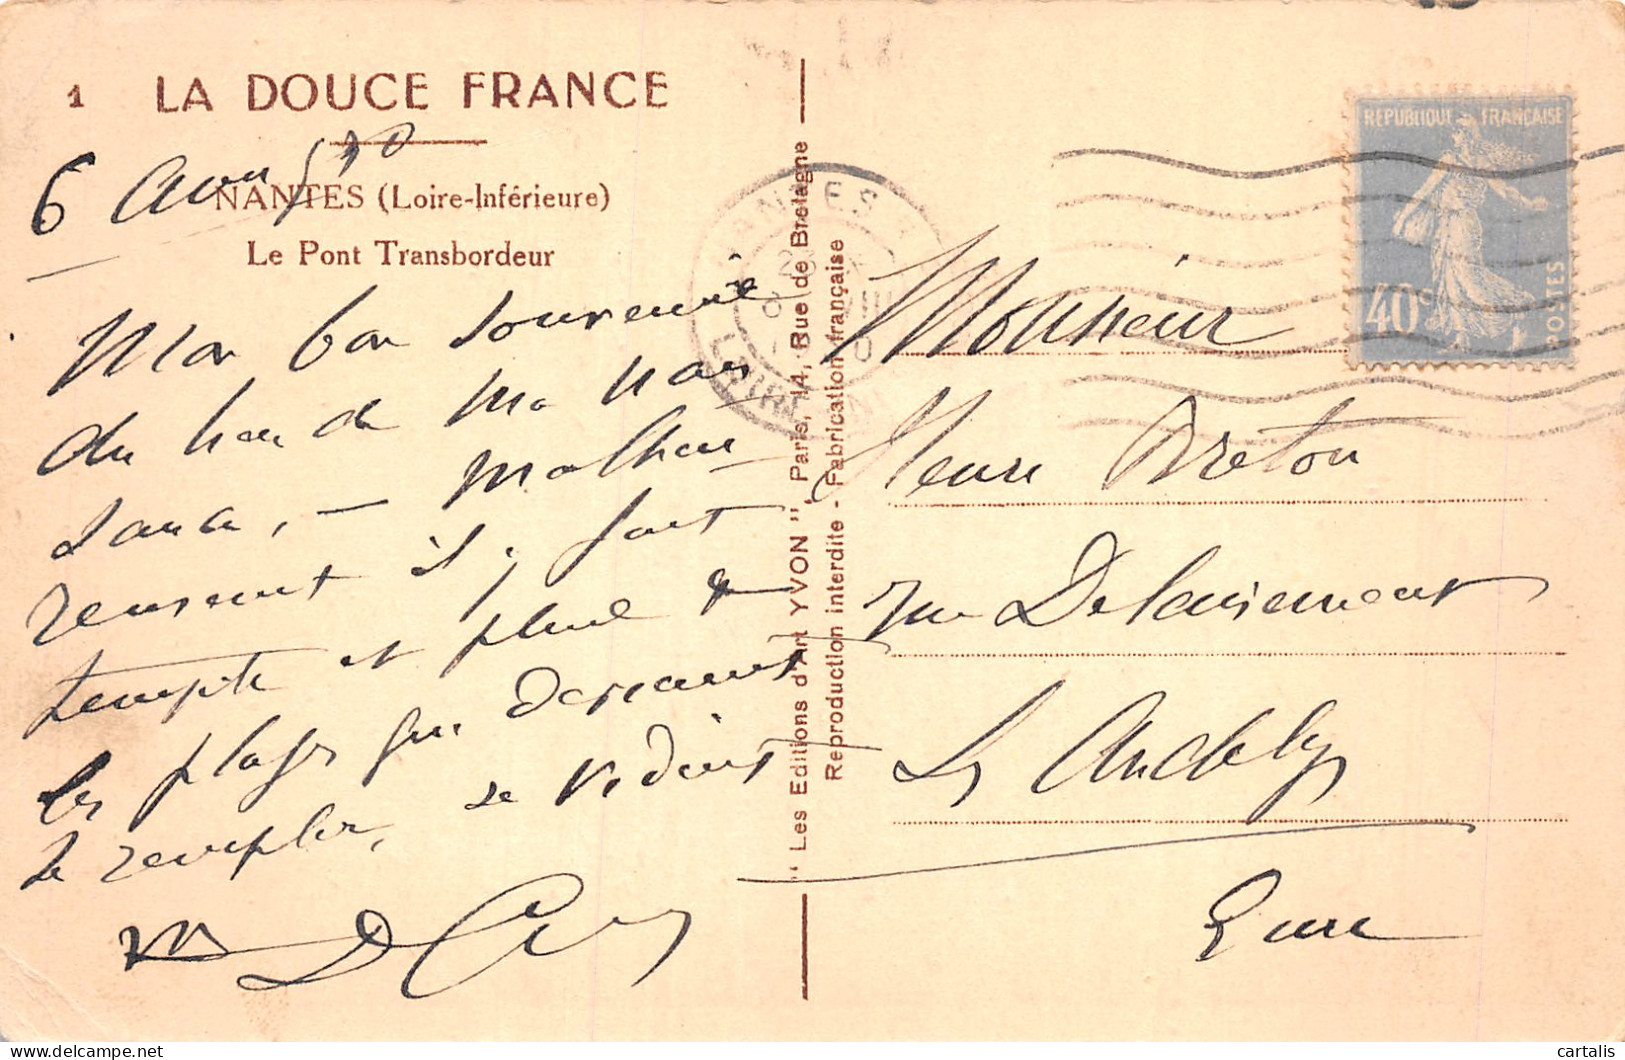 1 LA DOUCE FRANCE
6
NANTES (Loire-Inférieure)
Le Pont Transbordeur
Mon bon souvenir
du lieu de ma nais
sance, — malheu
reusement il y fait
tempête et pluie
les plages qui devraient
se remplir, se vident
" Les Editions d'Art YVON ", Paris, 14, Rue de Bretagne
Reproduction interdite - Fabrication française
NANTES
LOIRE
REPUBLIQUE FRANÇAISE
40c
POSTES
Monsieur
Henri Breton
rue
Les Andelys
Eure
cartalis